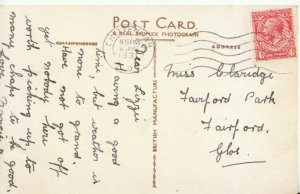 POST CARD
A REAL BROMIDE PHOTOGRAPH
CORRESPONDENCE
ADDRESS
BRITISH MANUFACTURE
Dear Lizzie
Having a good
time, but weather is
none to grand.
Have not got off
yet nobody here
worth picking up to
many chaps to be good.
Miss Claridge
Fairford Park
Fairford.
Glos.